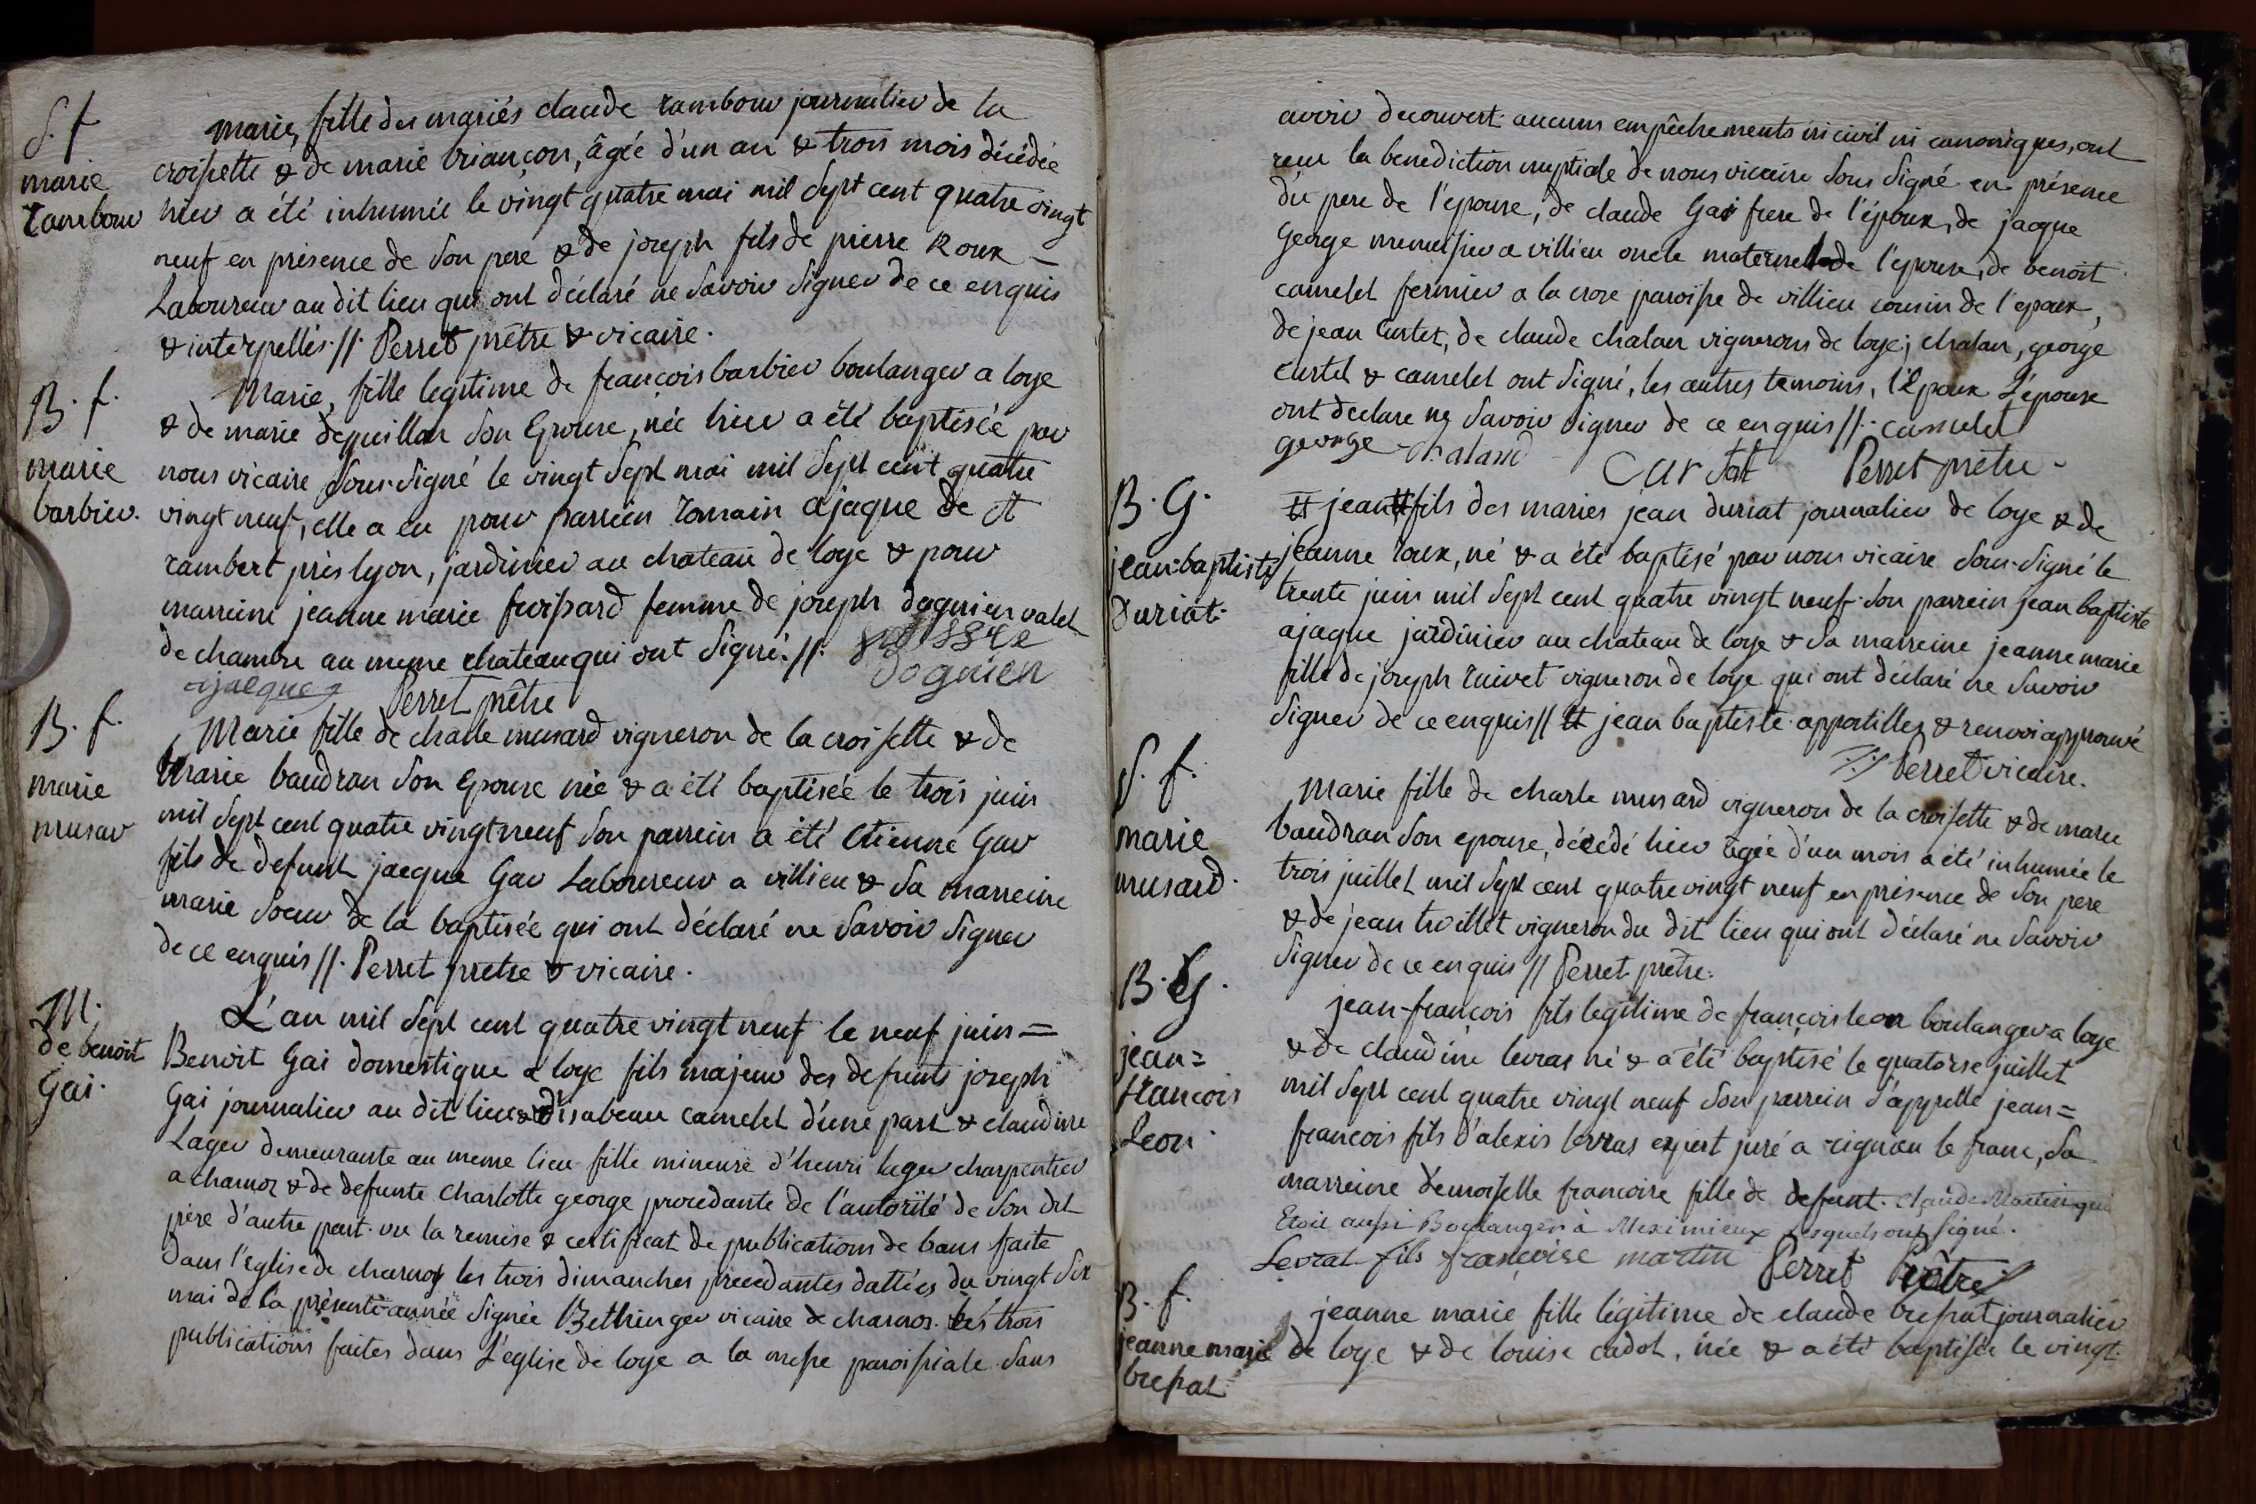 S. f
marie
rambour
marie, fille des mariés claude rambour journalier de la
croisette & de marie briançon, âgée d'un an & trois mois décédée
hier a été inhumée le vingt quatre mai mil sept cent quatre vingt
neuf en présence de son pere & de joseph fils de pierre Roux –
Laboureur au dit lieu qui ont déclaré ne savoir signer de ce enquis
& interpellés. //. Perret prêtre & vicaire.
B. f.
marie
barbier.
Marie, fille legitime de francois barbier boulanger a loye
& de marie deguillon son Epouse, née hier a été baptisée par
nous vicaire sous-signé le vingt sept mai mil sept cent quatre
vingt neuf, elle a eu pour parrein romain ajaque de st
rambert près lyon, jardinier au chateau de loye & pour
marreine jeanne marie froissard femme de joseph dognien valet
de chambre au meme chateau qui ont signé. //.
dognien
ajacques Perret prêtre
B. f.
marie
musar
Marie fille de charle musard vigneron de la croisette & de
Marie baudran son Epouse née & a été baptisée le trois juin
mil sept cent quatre vingt neuf son parrein a été Etienne Gar
fils de defunt jacque Gar Laboureur a villieu & sa marreine
marie soeur de la baptisée qui ont déclaré ne savoir signer
de ce enquis //. Perret prêtre & vicaire.
M.
de benoit
Gai.
L'an mil sept cent quatre vingt neuf le neuf juin =
Benoit Gai domestique a loye fils majeur des defunts joseph
Gai journalier au dit lieu & d'isabeau camelet d'une part & claudine
Lager demeurante au meme lieu fille mineure d'henri lager charpentier
a charnoz & de defunte charlotte george procedante de l'autorité de son dit
père d'autre part. vu la remise & certificat de publications de bans faite
dans l'eglise de charnoz les trois dimanches precedantes dattées du vingt six
mai de la présente année signée Bethinger vicaire de charnoz. les trois
publications faites dans L'église de loye a la messe paroissiale sans
avoir decouvert aucuns empêchements ni civil ni canoniques, ont
reçu la benediction nuptiale de nous vicaire sous signé en présence
du pere de l'epouse, de claude Gai frere de l'époux, de jacque
George menuisier a villieu oncle maternel de l'epouse, de benoit
camelet fermier a la croze paroisse de villieu cousin de l'epoux,
de jean curtet, de claude chalan vignerons de loye; chalan, george
curtet & camelet ont signé, les autres temoins, l'Epoux L'épouse
ont declaré ne savoir signer de ce enquis //. camelet
george chaland Curtet Perret prêtre.
B. G.
jean-baptiste
Duriat.
# jean # fils des maries jean duriat journalier de loye & de
jeanne roux, né & a été baptisé par nous vicaire sous-signé le
trente juin mil sept cent quatre vingt neuf. son parrein jean baptiste
ajaque jardinier au chateau de loye & sa marreine jeanne marie
fille de joseph ruivet vigneron de loye qui ont déclaré ne savoir
signer de ce enquis // # jean baptiste appostilles & renvoi approuvé
Perret vicaire.
S. f.
marie
musard.
Marie fille de charle musard vigneron de la croisette & de marie
baudran son epouse, décédé hier agée d'un mois a été inhumée le
trois juillet mil sept cent quatre vingt neuf en présence de son pere
& de jean trvillet vigneron du dit lieu qui ont déclaré ne savoir
signer de ce enquis // Perret prêtre.
B. G.
jean=
francois
Leon.
jean-francois fils legitime de francois leon boulanger a loye
& de claudine levras né & a été baptisé le quatorse juillet
mil sept cent quatre vingt neuf son parrein s'appelle jean=
francois fils d'alexis levras expert juré a rignieu le franc, sa
marreine demoiselle francoise fille de defunt. claude Martin qui
Etoit aussi Boulanger à Meximieux lesquels ont signé.
Levrat fils françoise martin Perret Prêtre
B. f.
jeanne marie
bressat
jeanne marie fille légitime de claude bressat journalier
de loye & de louise cadot, née & a été baptisée le vingt.